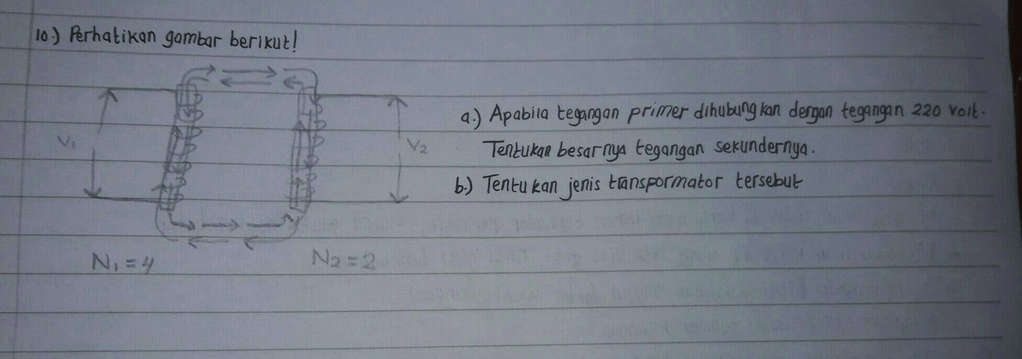 10.) Perhatikan gambar berikut!
a.) Apabila tegangan primer dihubungkan dengan tegangan 220 volt.
V1
V2
Tentukan besarnya tegangan sekundernya.
b.) Tentukan jenis transpormator tersebut
N1 = 4
N2 = 2